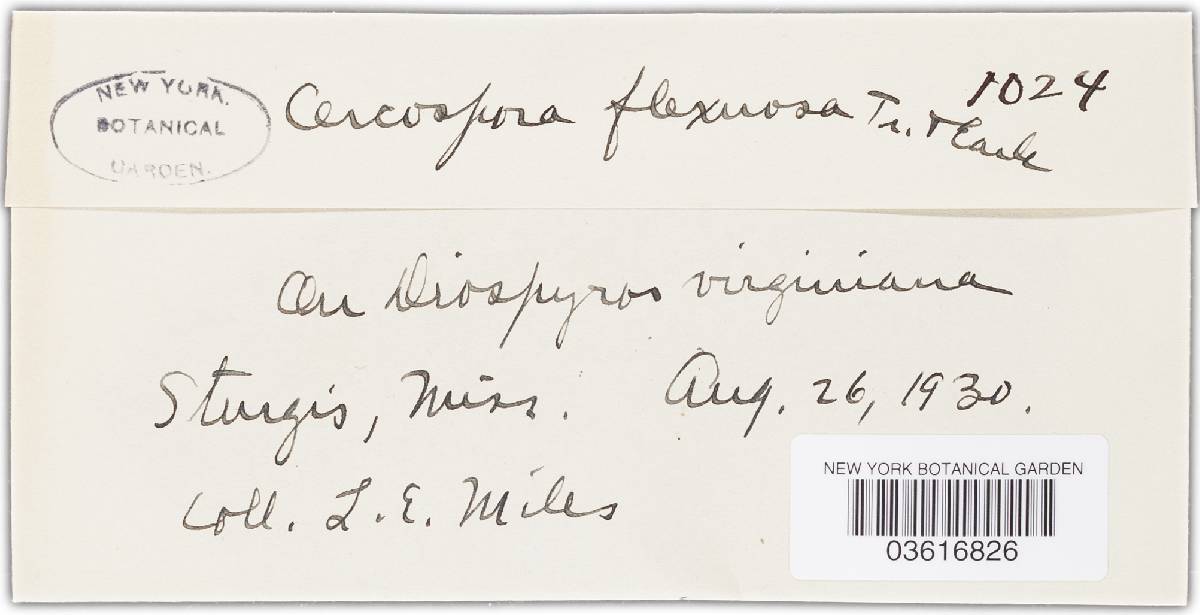 NEW YORK.
BOTANICAL
GARDEN.
Cercospora flexuosa Tr. & Earle
1024
On Diospyros virginiana
Sturgis, Miss. Aug. 26, 1930.
Coll. L. E. Miles
NEW YORK BOTANICAL GARDEN
03616826